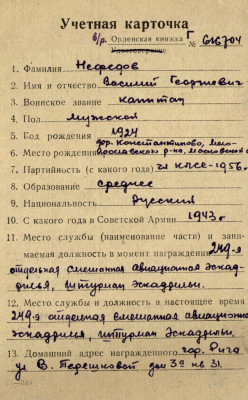 Учетная карточка
в/р. Орденская книжка Г
Удостоверение № 616704
1. Фамилия Нефедов
2. Имя и отчество Василий Георгиевич
3. Воинское звание капитан
4. Пол Мужской
5. Год рождения 1924
6. Место рождения дер. Константиново, Мало-
ярославского р-на, Московской о.
7. Партийность (с какого года) чл КПСС-1956г.
8. Образование среднее
9. Национальность Русский
10. С какого года в Советской Армии 1943г.
11. Место службы (наименование части) и зани-
маемая должность в момент награждения 249-я
отдельная смешанная авиационная эскад-
рилья, штурман эскадрильи.
12. Место службы и должность в настоящее время
249-я отдельная смешанная авиационная
эскадрилья, штурман эскадрильи.
13. Домашний адрес награжденного гор. Рига
ул В. Терешковой дом 39 кв 31.